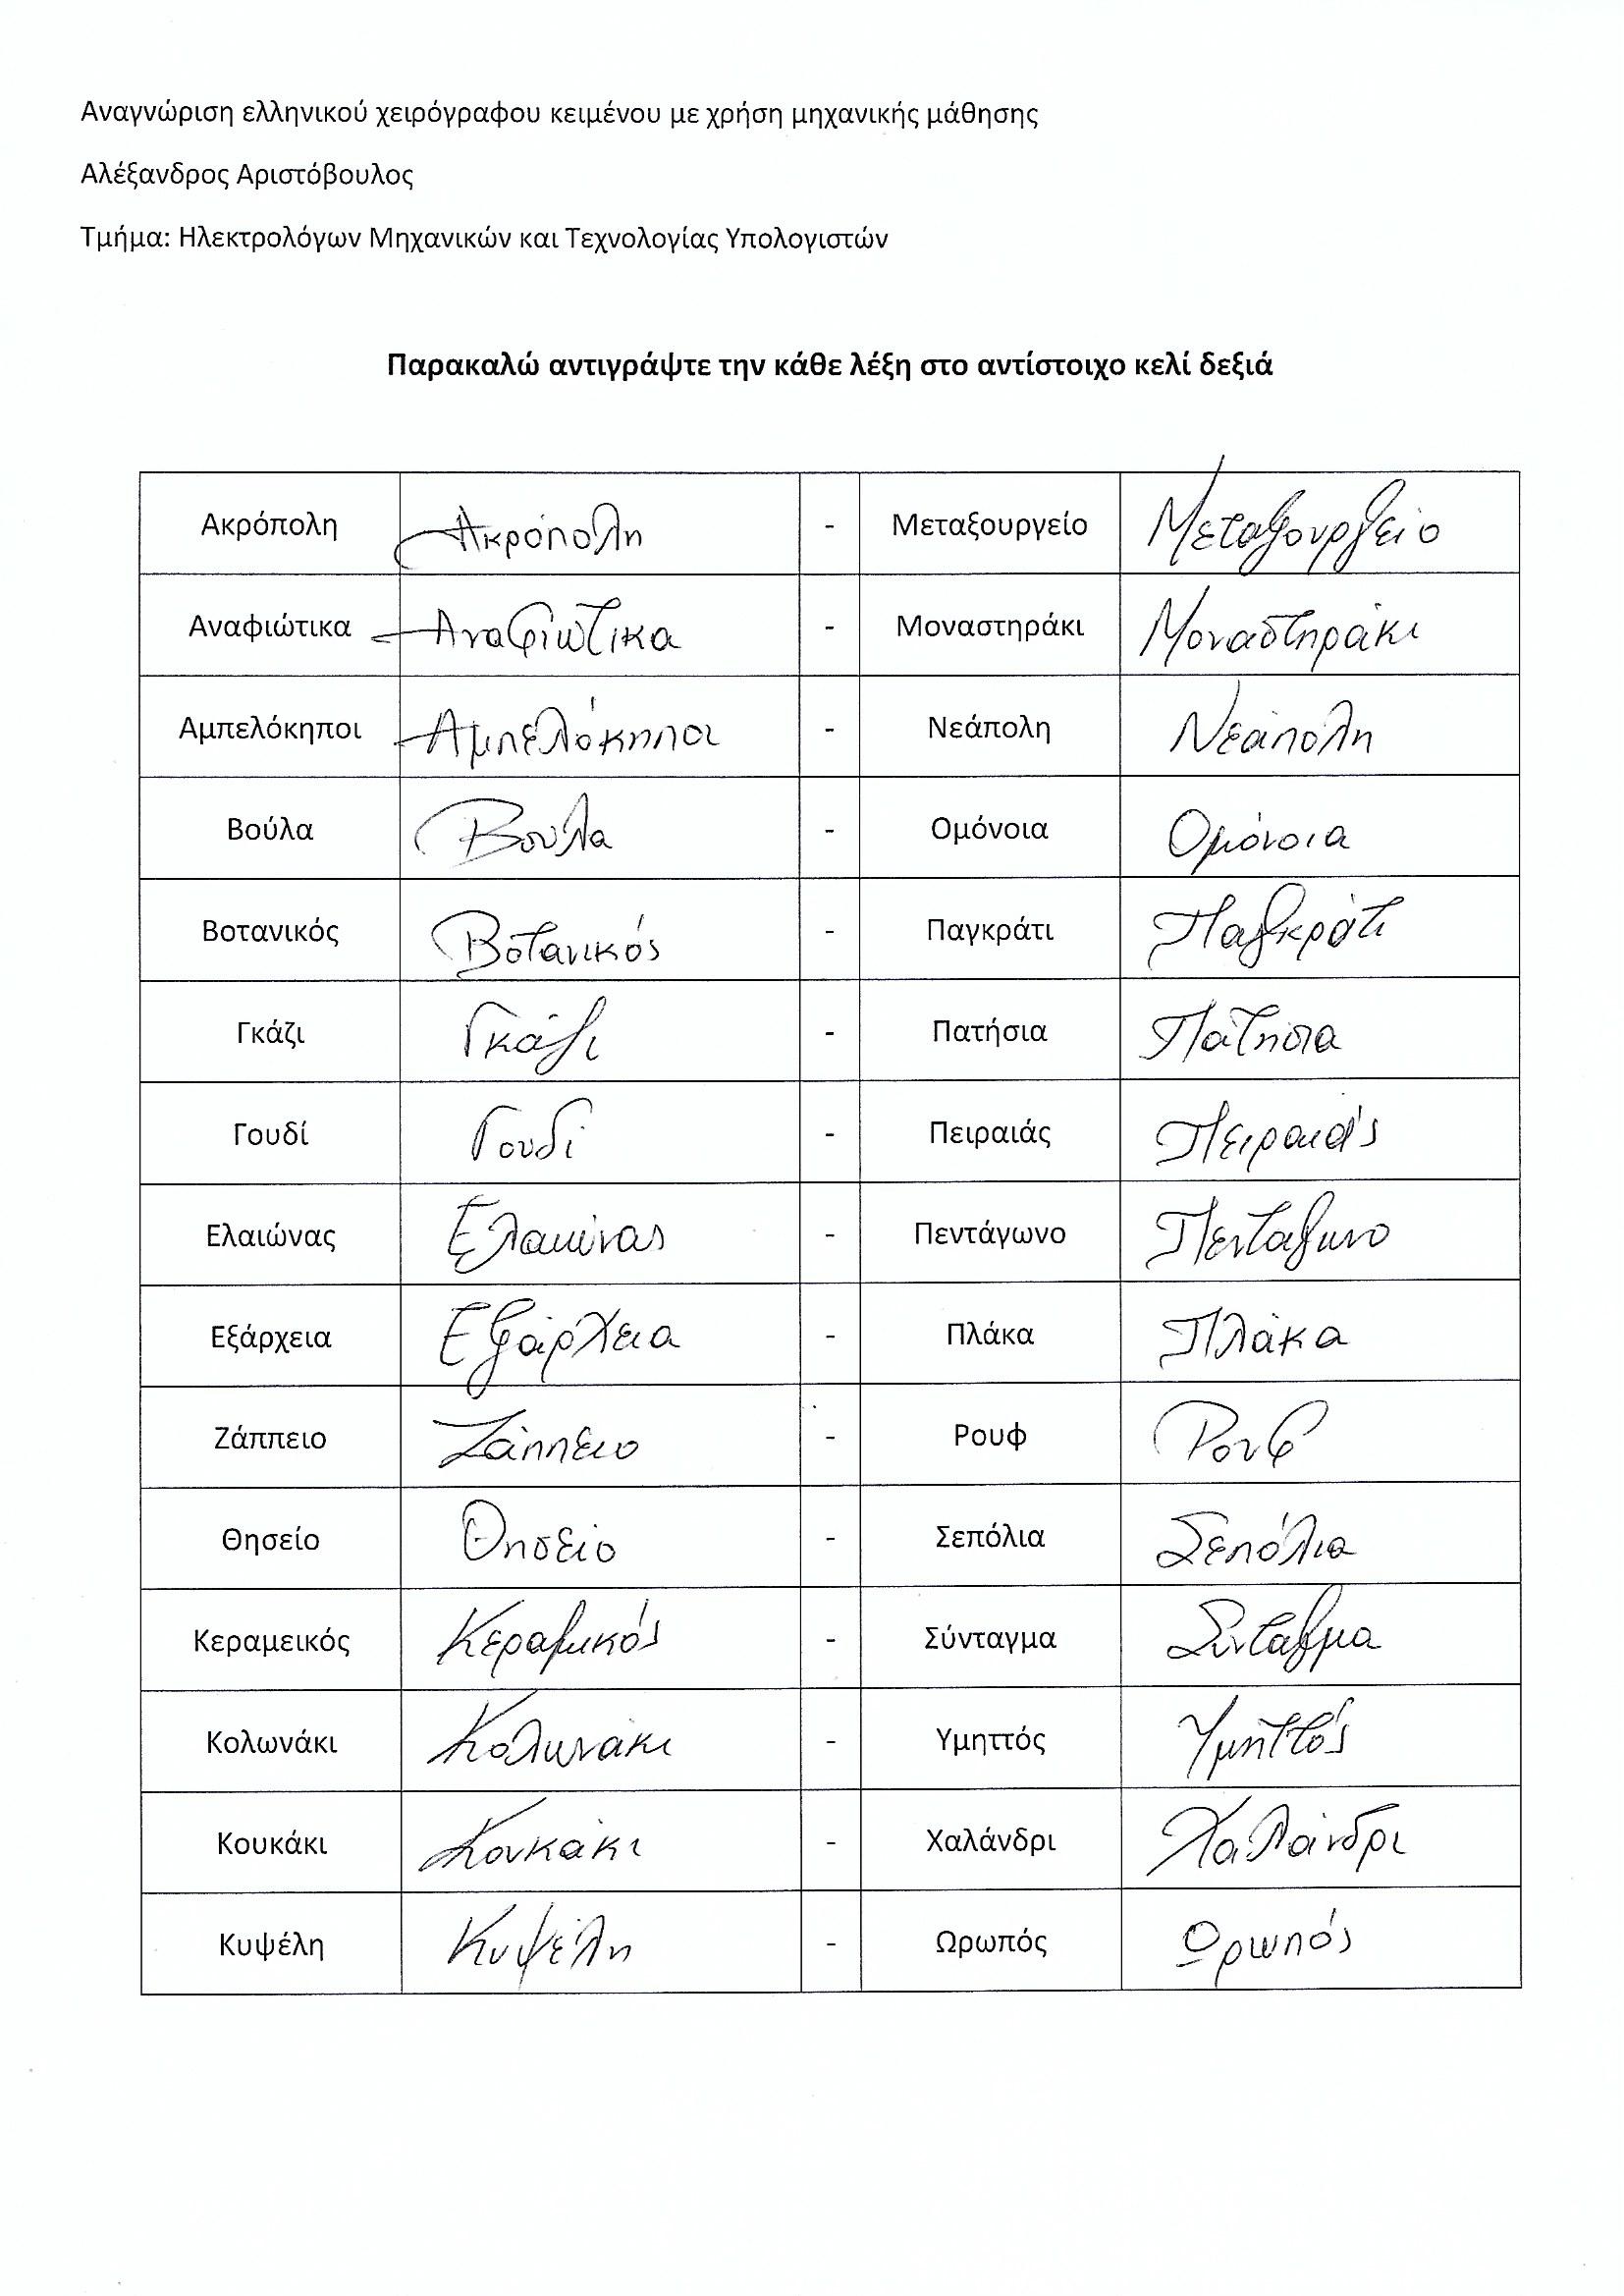 Αναγνώριση ελληνικού χειρόγραφου κειμένου με χρήση μηχανικής μάθησης
Αλέξανδρος Αριστόβουλος
Τμήμα: Ηλεκτρολόγων Μηχανικών και Τεχνολογίας Υπολογιστών
Παρακαλώ αντιγράψτε την κάθε λέξη στο αντίστοιχο κελί δεξιά
Ακρόπολη Ακρόπολη - Μεταξουργείο Μεταξουργείο
Αναφιώτικα Αναφιώτικα - Μοναστηράκι Μοναστηράκι
Αμπελόκηποι Αμπελόκηποι - Νεάπολη Νεάπολη
Βούλα Βούλα - Ομόνοια Ομόνοια
Βοτανικός Βοτανικός - Παγκράτι Παγκράτι
Γκάζι Γκάζι - Πατήσια Πατήσια
Γουδί Γουδί - Πειραιάς Πειραιάς
Ελαιώνας Ελαιώνας - Πεντάγωνο Πεντάγωνο
Εξάρχεια Εξάρχεια - Πλάκα Πλάκα
Ζάππειο Ζάππειο - Ρουφ Ρουφ
Θησείο Θησείο - Σεπόλια Σεπόλια
Κεραμεικός Κεραμικός - Σύνταγμα Σύνταγμα
Κολωνάκι Κολωνάκι - Υμηττός Υμηττός
Κουκάκι Κουκάκι - Χαλάνδρι Χαλάνδρι
Κυψέλη Κυψέλη - Ωρωπός Ωρωπός